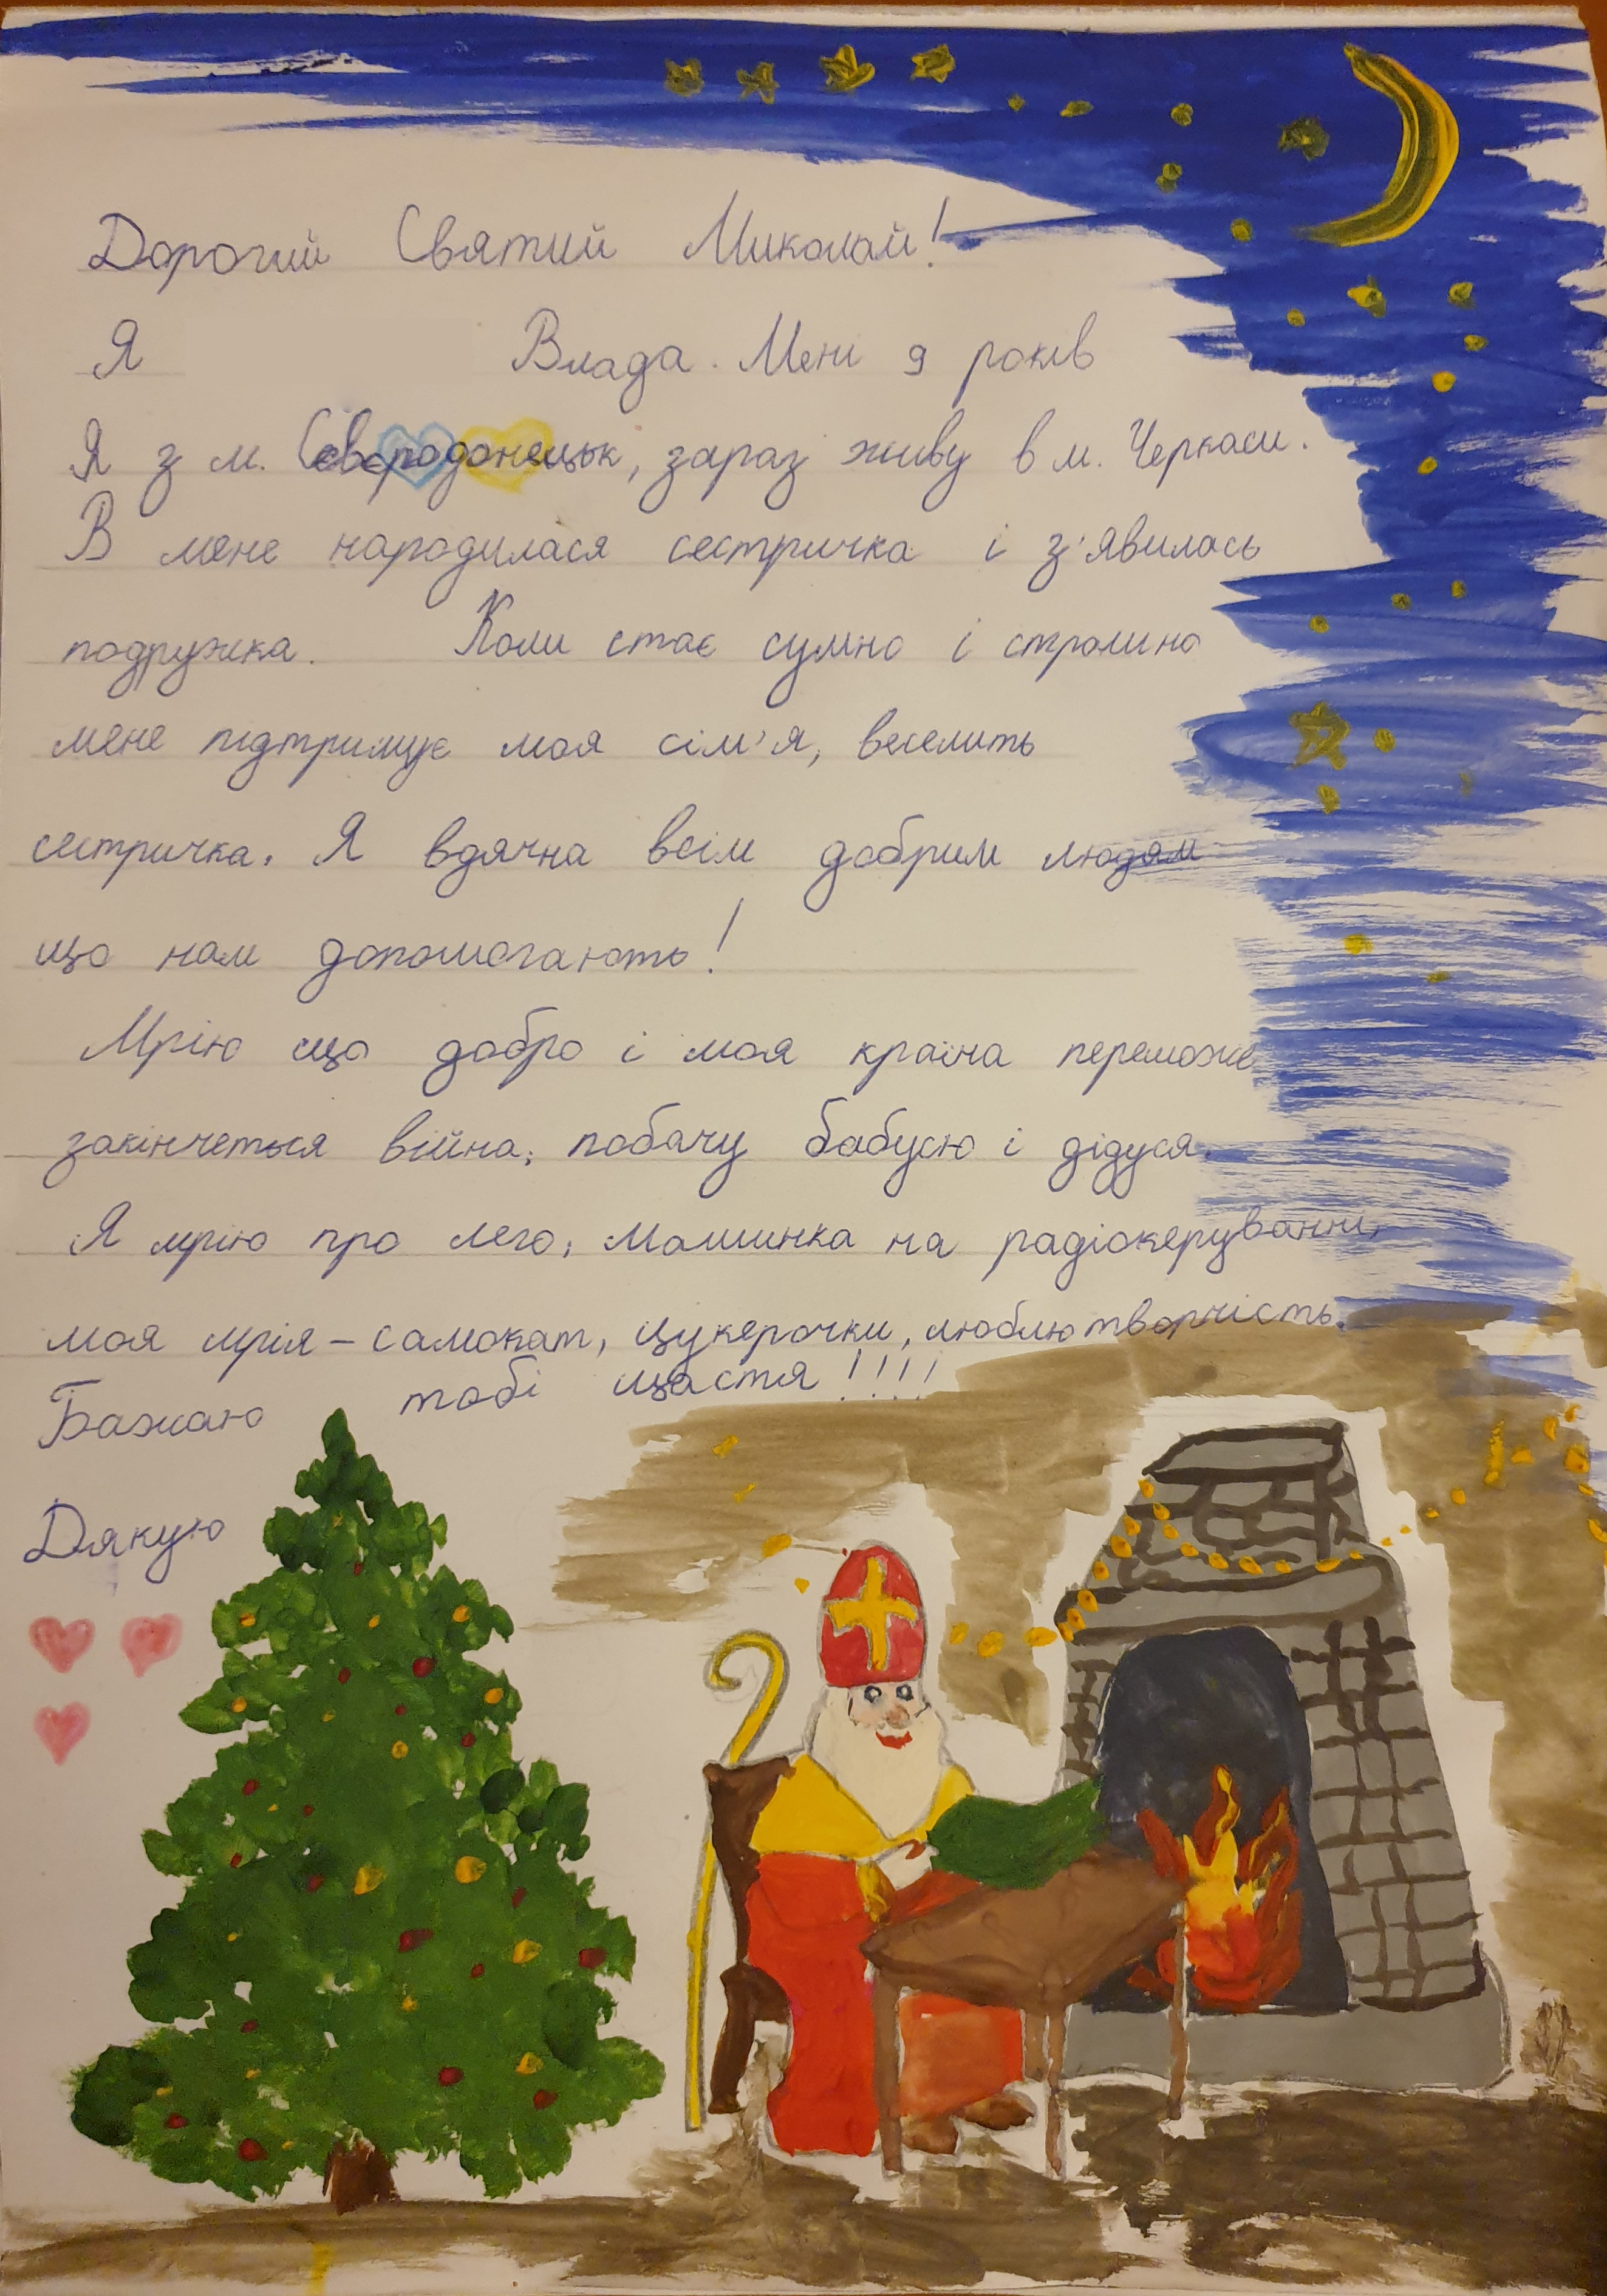 Дорогий Святий Миколай!
Я Влада. Мені 9 років
Я з м. Сєвєродонецьк, зараз живу в м. Черкаси.
В мене народилася сестричка і з'явилась
подружка. Коли стає сумно і страшно
мене підтримує моя сім'я, веселить
сестричка. Я вдячна всім добрим людям
що нам допомогають!
Мрію що добро і моя країна переможе
закінчеться війна, побачу бабусю і дідуся.
Я мрію про лего, машинка на радіокеруванні,
моя мрія – самокат, цукерочки, люблю творчість.
Бажаю тобі щастя!!!!
Дякую